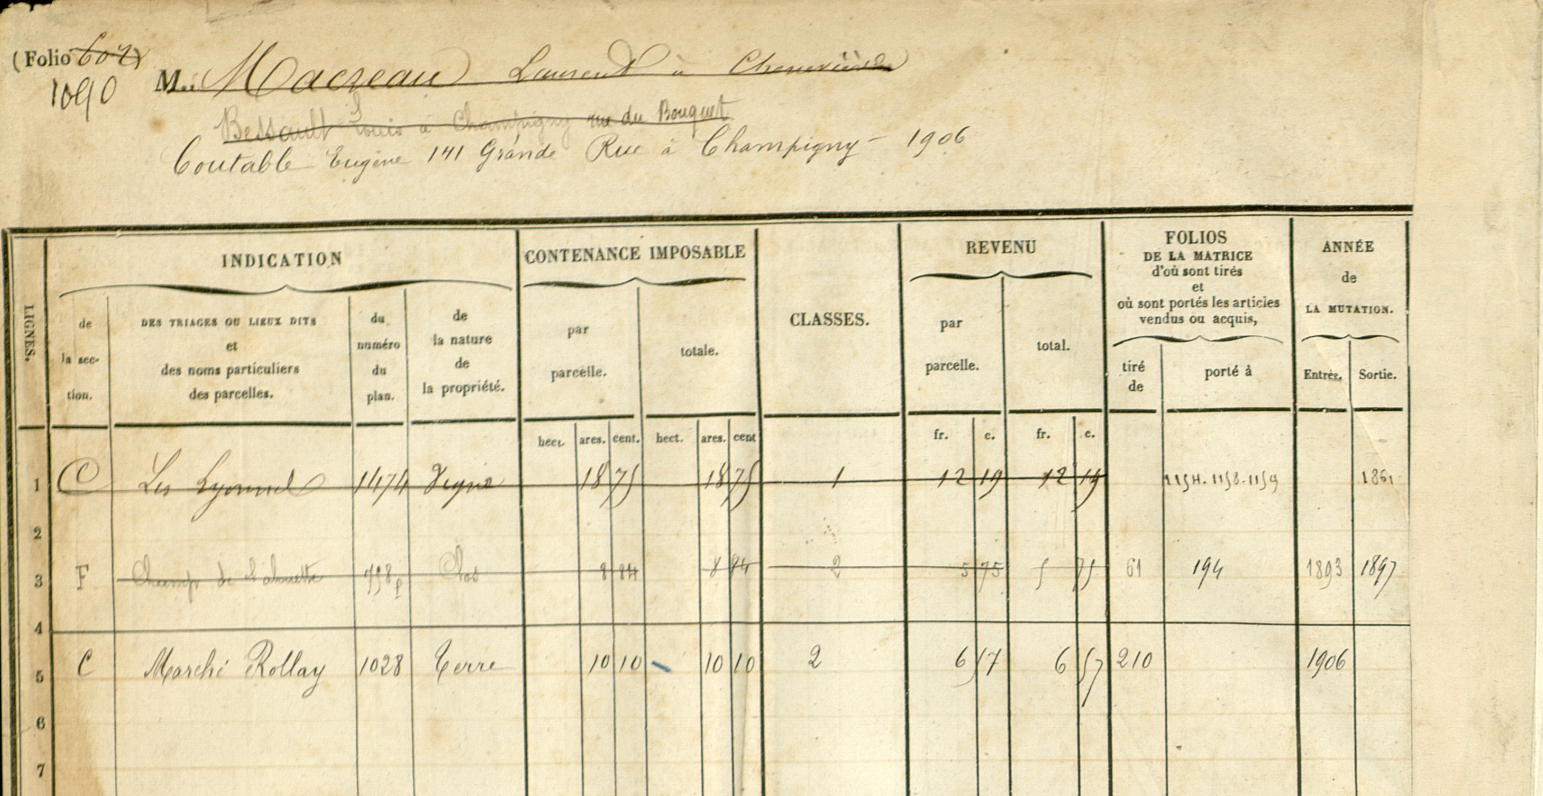 (Folio 607)
1090
M. Laurent à Chenevières
Bessault Louis à Champigny rue du Bouquet
Coutable Eugène 141 Grande Rue à Champigny - 1906
LIGNES.
INDICATION
de la section.
DES TRIAGES OU LIEUX DITS et des noms particuliers des parcelles.
du numéro du plan.
de la nature de la propriété.
CONTENANCE IMPOSABLE
par parcelle.
totale.
CLASSES.
REVENU
par parcelle.
total.
FOLIOS
DE LA MATRICE
d'où sont tirés
et
où sont portés les articles
vendus ou acquis,
tiré de
porté à
ANNÉE
de
LA MUTATION.
Entrée.
Sortie.
hect. ares. cent. hect. ares. cent fr. c. fr. c.
1 C Les 1474 Vigne 18 75 18 75 1 12 19 12 19 1154. 1158. 1159 1861
2
3 F Champ de l'alouette 798p Clos 8 84 8 84 2 5 75 5 75 61 194 1893 1897
4
5 C Marché Rollay 1028 Terre 10 10 10 10 2 6 57 6 57 210 1906
6
7